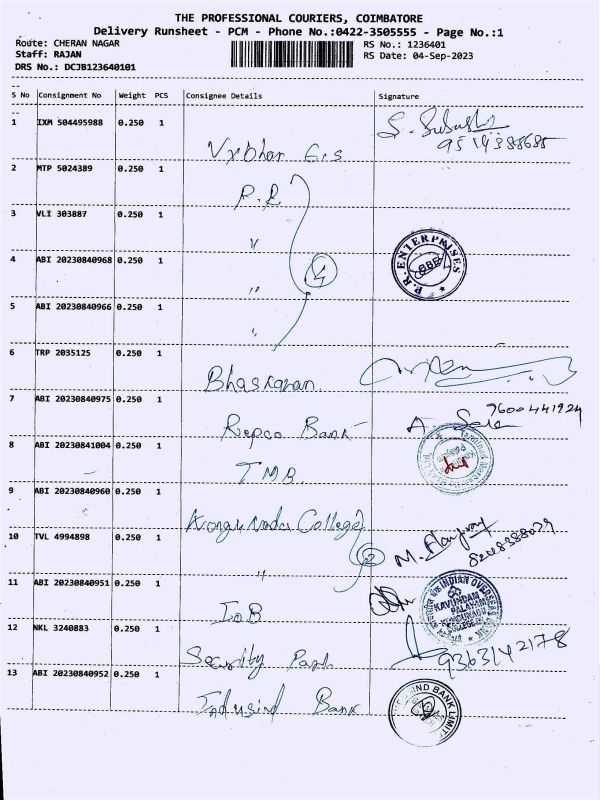 THE PROFESSIONAL COURIERS, COIMBATORE
Delivery Runsheet - PCM - Phone No.:0422-3505555 - Page No.:1
Route: CHERAN NAGAR RS No.: 1236401
Staff: RAJAN RS Date: 04-Sep-2023
DRS No.: DCJB123640101
S No Consignment No Weight PCS Consignee Details Signature
1 IXM 504495988 0.250 1
9514388685
2 MTP 5024389 0.250 1
P.R
3 VLI 303887 0.250 1
"
4 ABI 20230840968 0.250 1 4 P.R. ENTERPRISES
"
5 ABI 20230840966 0.250 1
"
6 TRP 2035125 0.250 1
Bhaskaran
7 ABI 20230840975 0.250 1 9600441924
Repco Bank
8 ABI 20230841004 0.250 1
TMB
9 ABI 20230840960 0.250 1
Kongu Nadu College
10 TVL 4994898 0.250 1 2 8248388029
"
11 ABI 20230840951 0.250 1 INDIAN OVERSEAS BANK
KAVUNDAM PALAYAM
IOB
12 NKL 3240883 0.250 1
Security 9363142178
13 ABI 20230840952 0.250 1
Indusind Bank